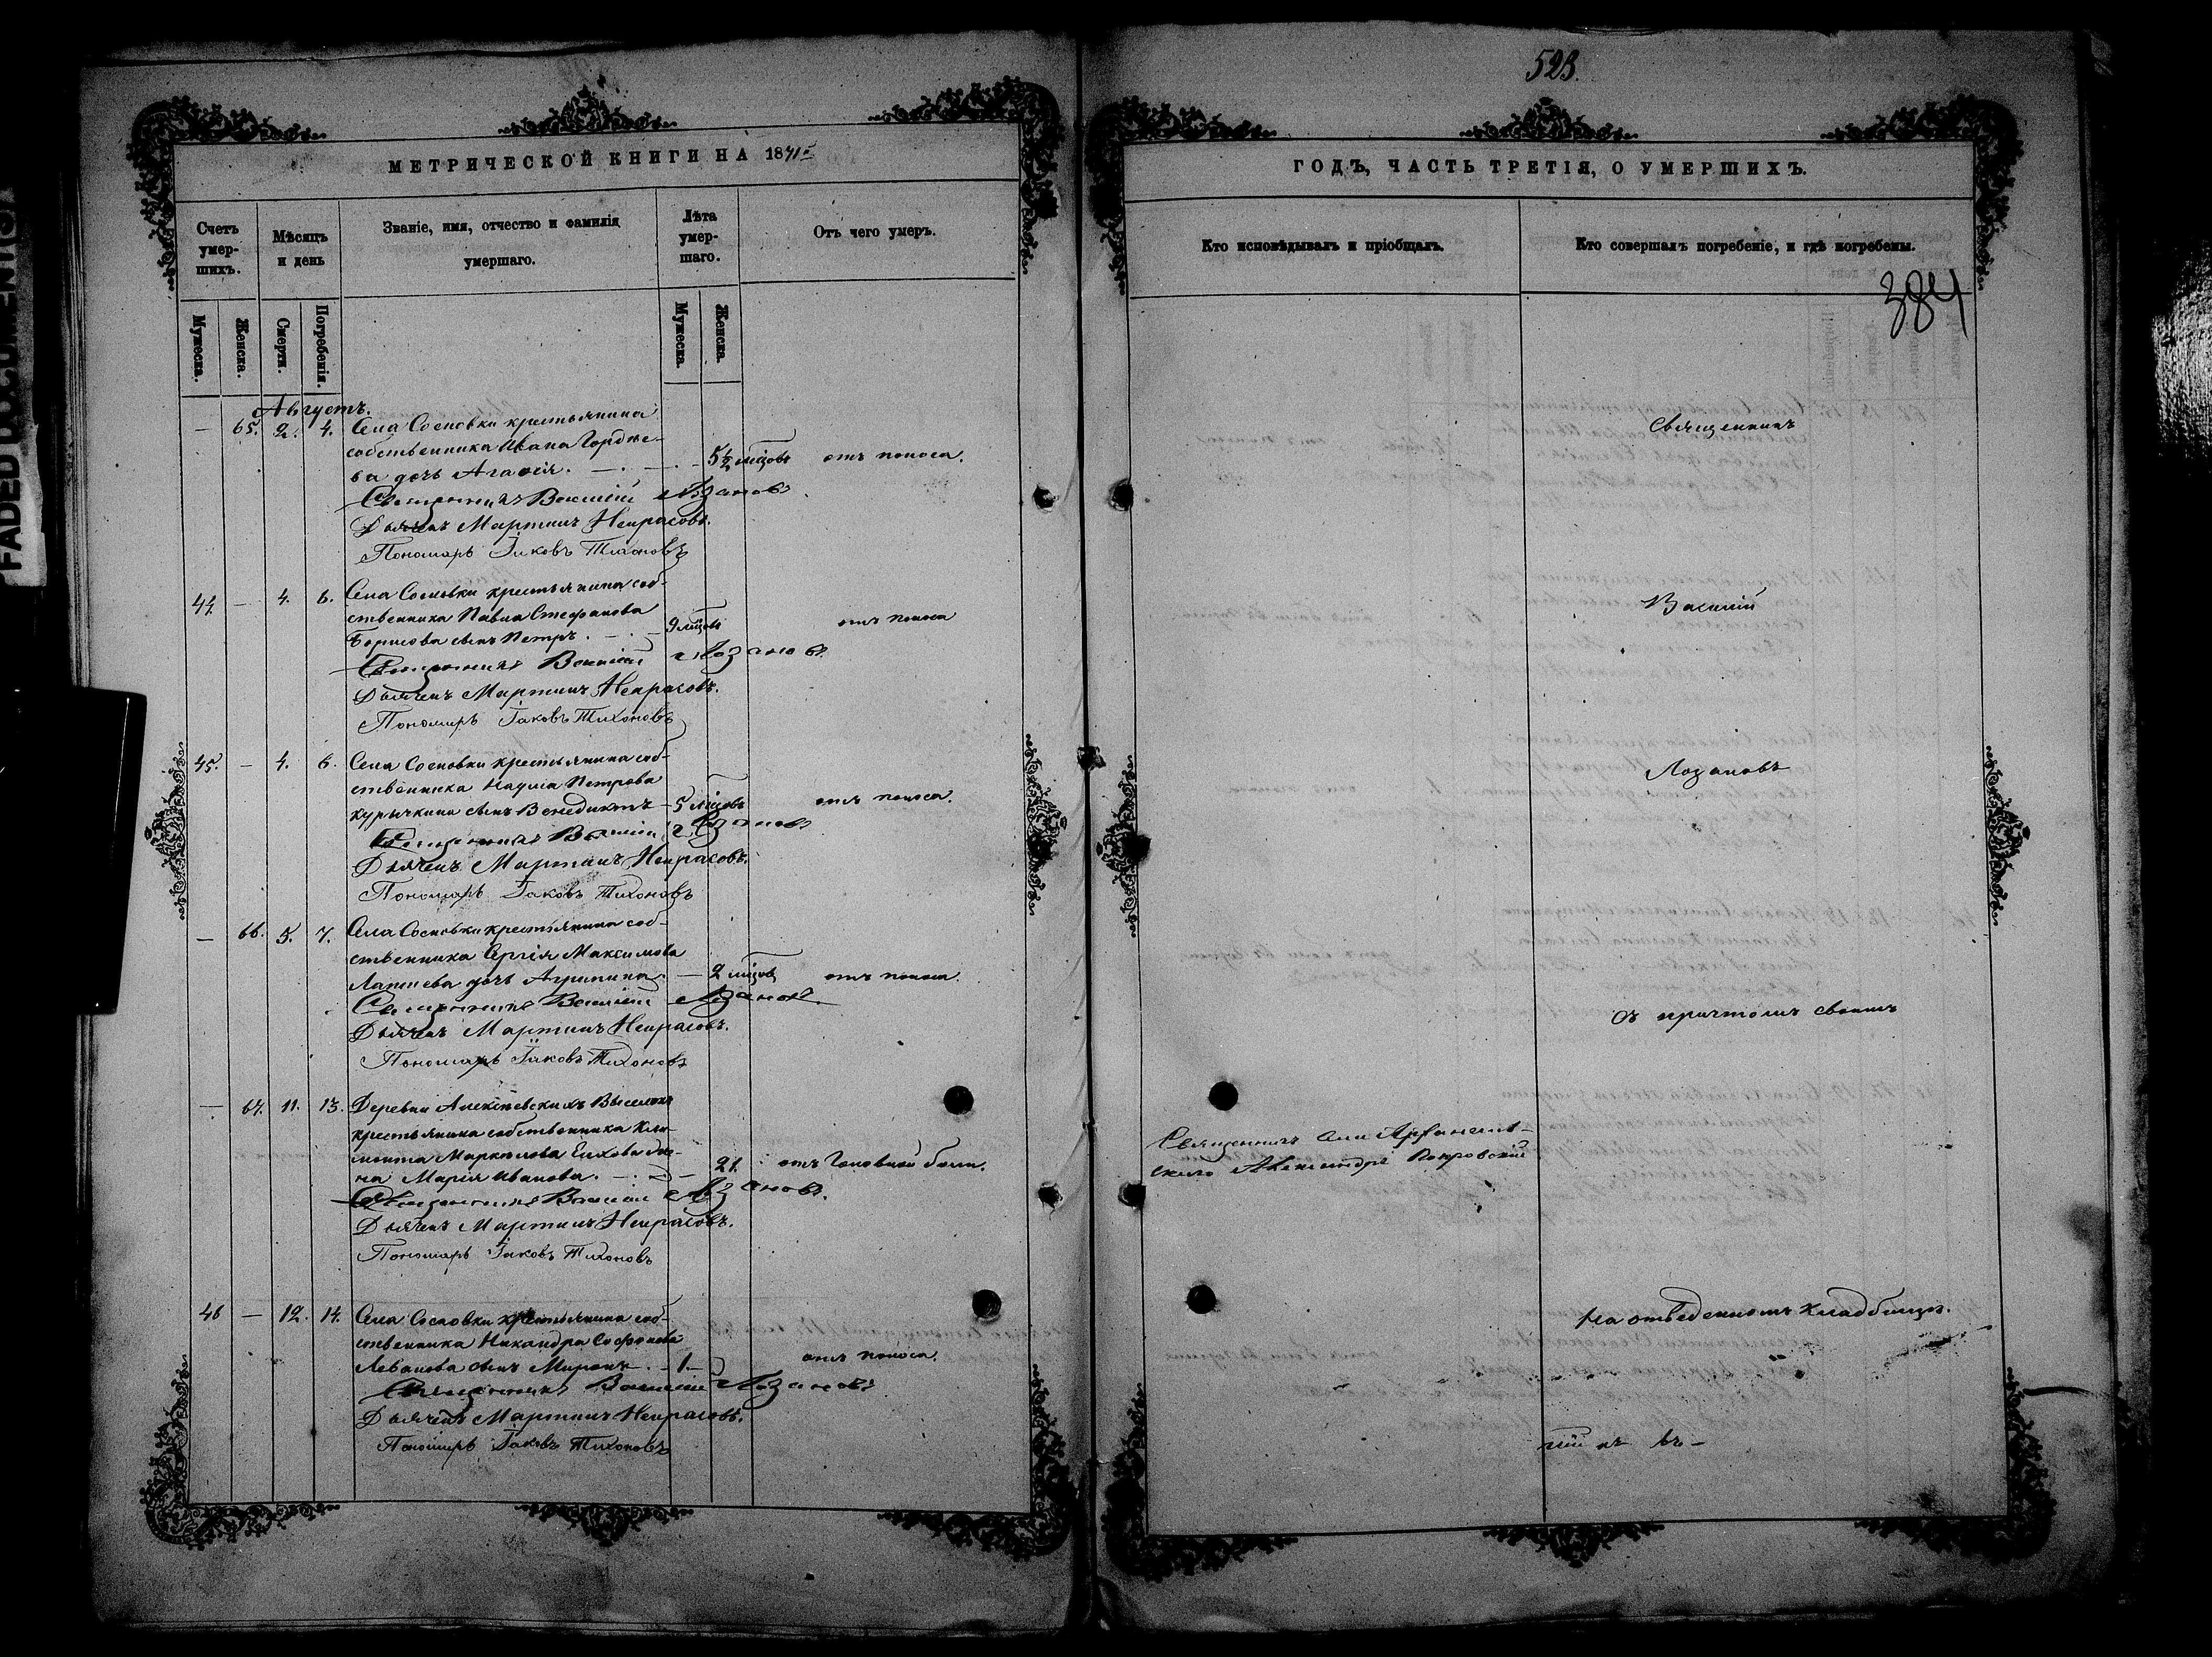 FADED DOCUMENT(S)
МЕТРИЧЕСКОЙ КНИГИ НА 1871й
Счетъ умер-шихъ.
Мѣсяцъ и день
Званіе, имя, отчество и фамилія умершаго.
Лѣта умер-шаго.
Отъ чего умеръ.
Мужеска.
Женска.
Смерти.
Погребенія.
Мужеска.
Женска.
Августъ.
— 65. 2. 4. Села Сосновки крестьянина
собственника Ивана Гордѣе-
ва дочь Агаѳія. — 5½ мѣцовъ отъ поноса.
Священникъ Василій Лозановъ
Дьячекъ Мартинъ Некрасовъ.
Пономарь Іаковъ Тихоновъ
44. — 4. 6. Села Сосновки крестьянина соб-
ственника Павла Стефанова
Борисова сынъ Петръ. — 9 мѣцовъ отъ поноса
Священникъ Василій Лозановъ
Дьячекъ Мартинъ Некрасовъ.
Пономарь Іаковъ Тихоновъ
45. — 4. 6. Села Сосновки крестьянина соб-
ственника Наума Петрова
Курычкина сынъ Венедиктъ — 5 мѣцовъ отъ поноса.
Священникъ Василій Лозановъ
Дьячекъ Мартинъ Некрасовъ.
Пономарь Іаковъ Тихоновъ
— 66. 5. 7. Села Сосновки крестьянина соб-
ственника Сергія Максимова
Лаптева дочь Агрипина. — 2 мѣцовъ отъ поноса.
Священникъ Василій Лозановъ.
Дьячекъ Мартинъ Некрасовъ.
Пономарь Іаковъ Тихоновъ
— 67. 11. 13. Деревни Алексѣевскихъ Выселокъ
крестьянина собственника Кли-
мента Маркелова Елхова же-
на Марія Иванова. — 21. отъ Головной боли.
Священникъ Василій Лозановъ.
Дьячекъ Мартинъ Некрасовъ.
Пономарь Іаковъ Тихоновъ
46 — 12. 14. Села Сосновки крестьянина соб-
ственника Никандра Софонова
Леванова сынъ Миронъ. — 1. — отъ поноса.
Священникъ Василій Лозановъ
Дьячекъ Мартинъ Некрасовъ.
Пономарь Іаковъ Тихоновъ
523.
ГОДЪ, ЧАСТЬ ТРЕТІЯ, О УМЕРШИХЪ.
Кто исповѣдывалъ и пріобщалъ.
Кто совершалъ погребеніе, и гдѣ погребены.
384
Священникъ
Василій
Лозановъ
Съ причтомъ своимъ
Священникъ села Архангель-
скаго Александръ Покровскій
На отведенномъ кладбищѣ.